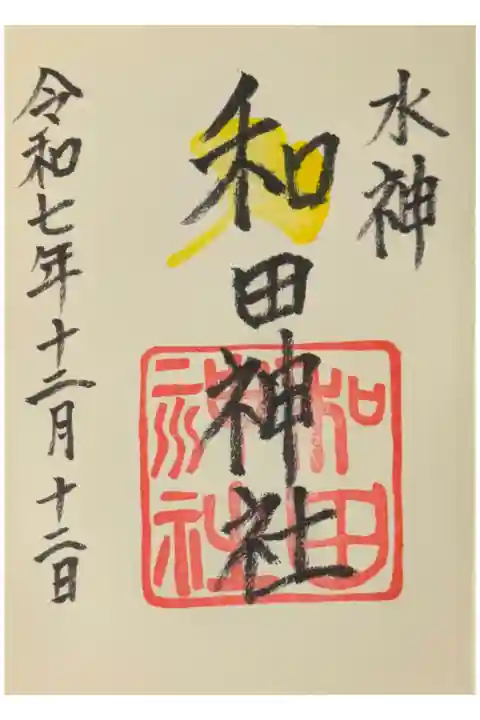 水神
和田神社
和田
神社
令和七年十二月十二日